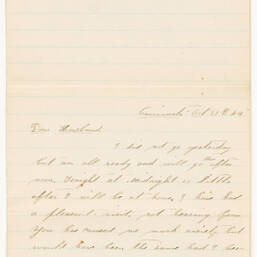 Cincinnati Oct 21st
Dear Husband
I did not go yesterday
but am all ready and will go this after
noon. Tonight at midnight or little
after I will be at home, I have had
a pleasant visit, not hearing from
You has caused me much anxiety but
would have been the same had I been